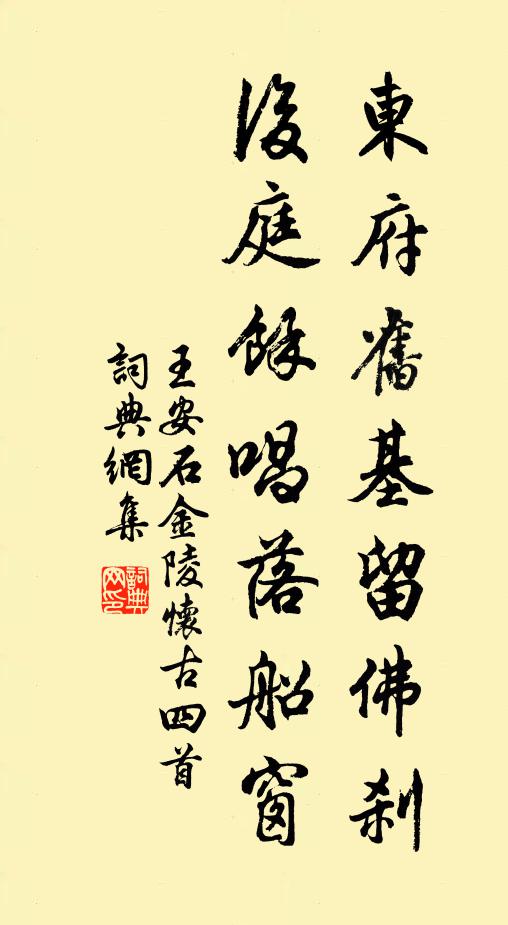 東府舊基留佛刹
後庭餘唱落船窗
王安石金陵懷古四首
詞典網集
詞典网印